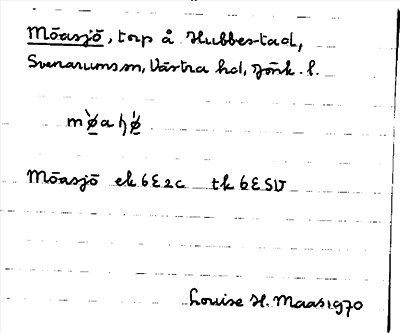 Möasjö, torp å Hubbestad,
Svenarums sn, Västra hd, Jönk. l.
mø̀aɧø̀
Möasjö ek 6E2c tk 6ESV
Louise H. Maas 1970